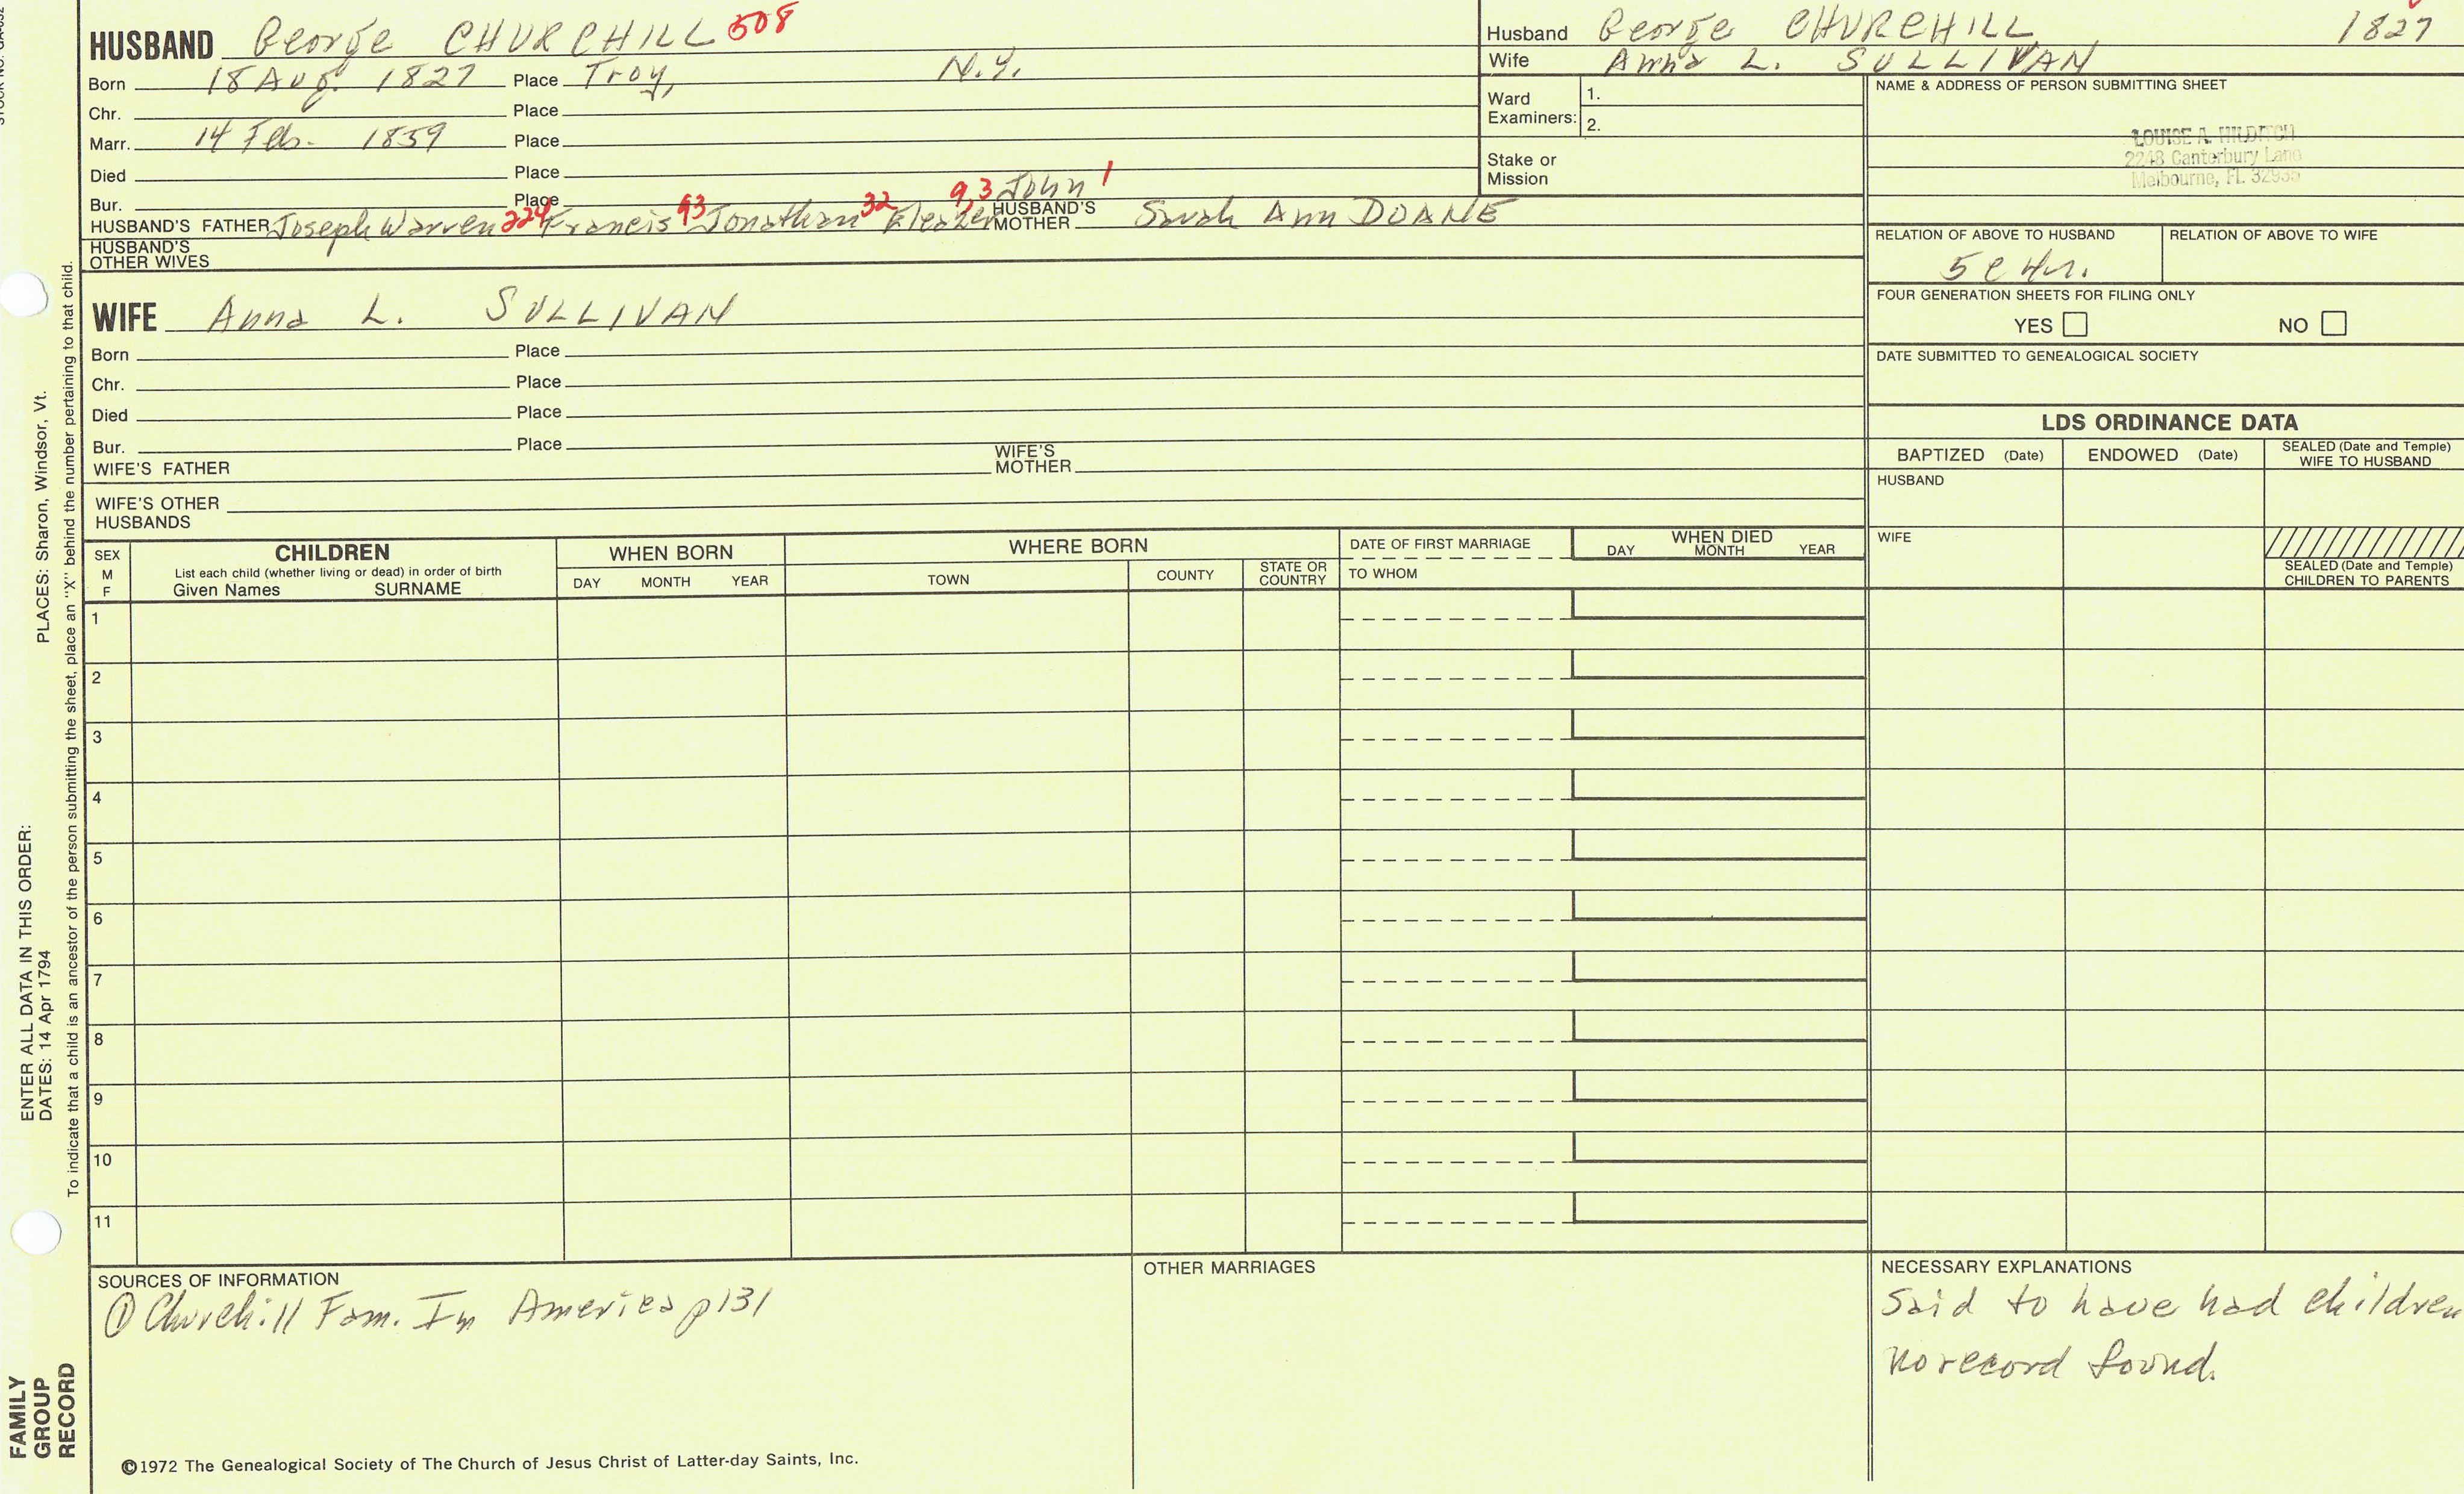 HUSBAND George CHURCHILL 508
Born 18 Aug. 1827 Place Troy, N.Y.
Chr. Place
Marr. 14 Feb. 1859 Place
Died Place
Bur. Place
HUSBAND'S FATHER Joseph Warren 224 Francis 93 Jonathan 32 Eleazer 9,3 John 1 HUSBAND'S MOTHER Sarah Ann DOANE
HUSBAND'S OTHER WIVES
WIFE Anna L. SULLIVAN
Born Place
Chr. Place
Died Place
Bur. Place
WIFE'S FATHER WIFE'S MOTHER
WIFE'S OTHER HUSBANDS
Husband George CHURCHILL 1827
Wife Anna L. SULLIVAN
Ward Examiners: 1.
2.
Stake or Mission
NAME & ADDRESS OF PERSON SUBMITTING SHEET
LOUISE A. HILDITCH
2248 Canterbury Lane
Melbourne, FL 32935
RELATION OF ABOVE TO HUSBAND RELATION OF ABOVE TO WIFE
5 C 4r.
FOUR GENERATION SHEETS FOR FILING ONLY
YES NO
DATE SUBMITTED TO GENEALOGICAL SOCIETY
LDS ORDINANCE DATA
BAPTIZED (Date) ENDOWED (Date) SEALED (Date and Temple) WIFE TO HUSBAND
HUSBAND
WIFE
SEALED (Date and Temple) CHILDREN TO PARENTS
SEX M F
CHILDREN
List each child (whether living or dead) in order of birth
Given Names SURNAME
WHEN BORN
DAY MONTH YEAR
WHERE BORN
TOWN COUNTY STATE OR COUNTRY
DATE OF FIRST MARRIAGE
TO WHOM
WHEN DIED
DAY MONTH YEAR
1
2
3
4
5
6
7
8
9
10
11
SOURCES OF INFORMATION
① Churchill Fam. In America p131
OTHER MARRIAGES
NECESSARY EXPLANATIONS
Said to have had children
No record found.
©1972 The Genealogical Society of The Church of Jesus Christ of Latter-day Saints, Inc.
FAMILY GROUP RECORD
ENTER ALL DATA IN THIS ORDER:
DATES: 14 Apr 1794
PLACES: Sharon, Windsor, Vt.
To indicate that a child is an ancestor of the person submitting the sheet, place an "X" behind the number pertaining to that child.